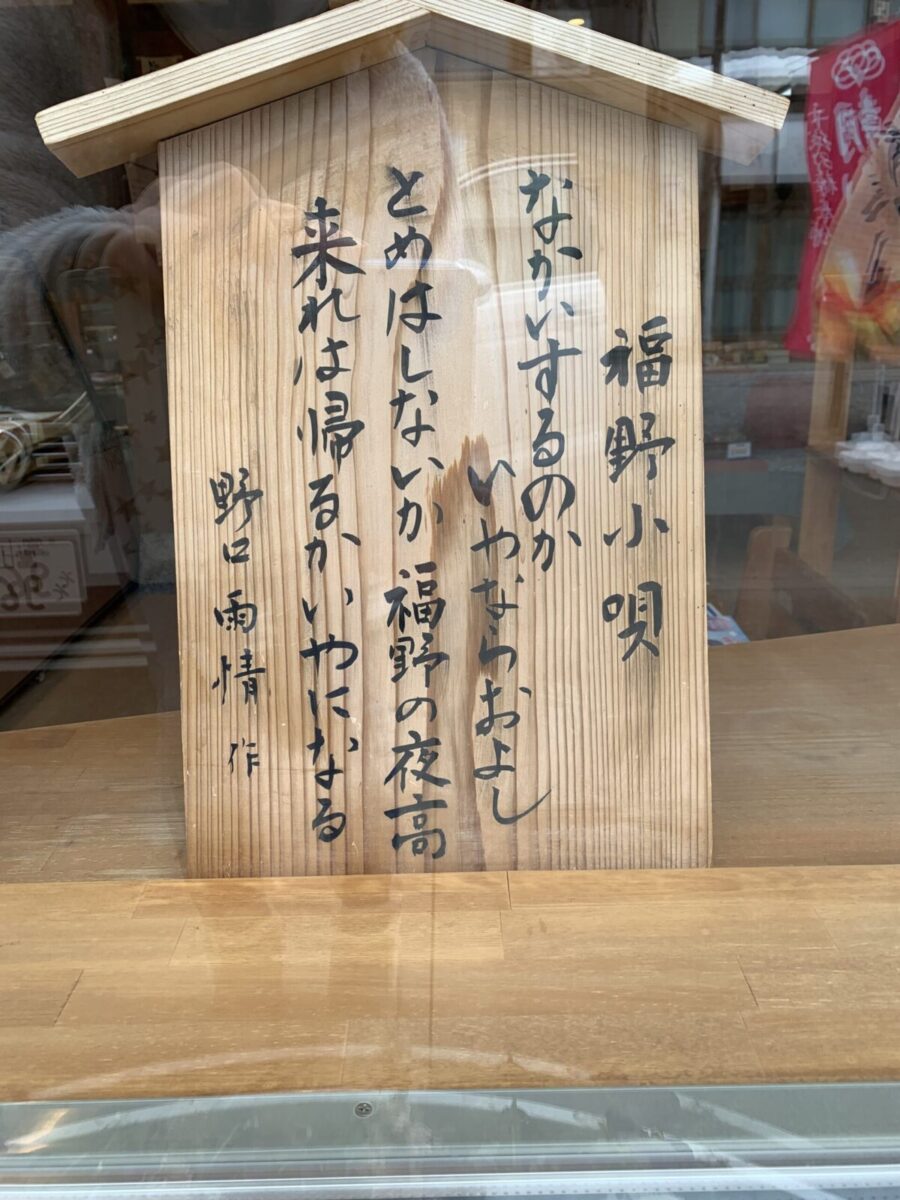 福野小唄
なかいするのか
いやならおよし
とめはしないか 福野の夜高
来れは帰るかいやになる
野口雨情 作